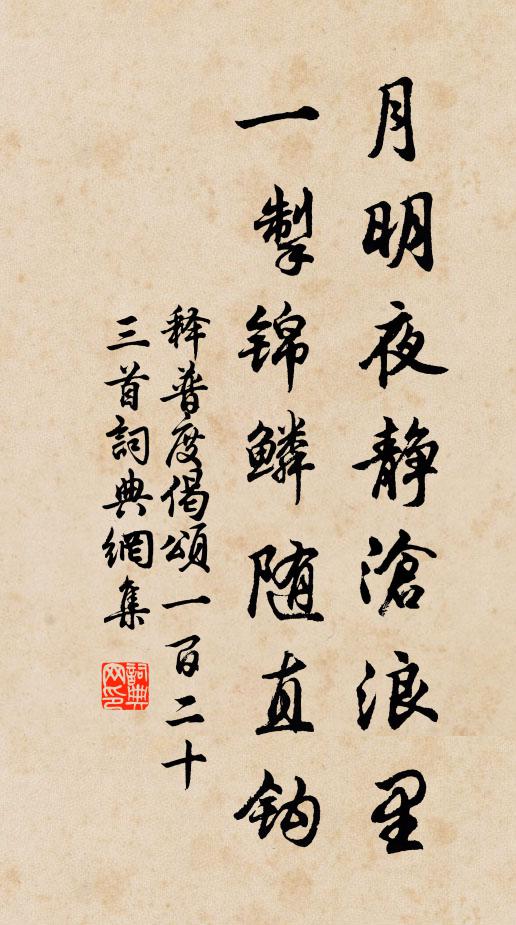 月明夜静滄浪里
一掣锦鳞随直钩
释普度偈颂一百二十
三首詞典網集
詞典
网印